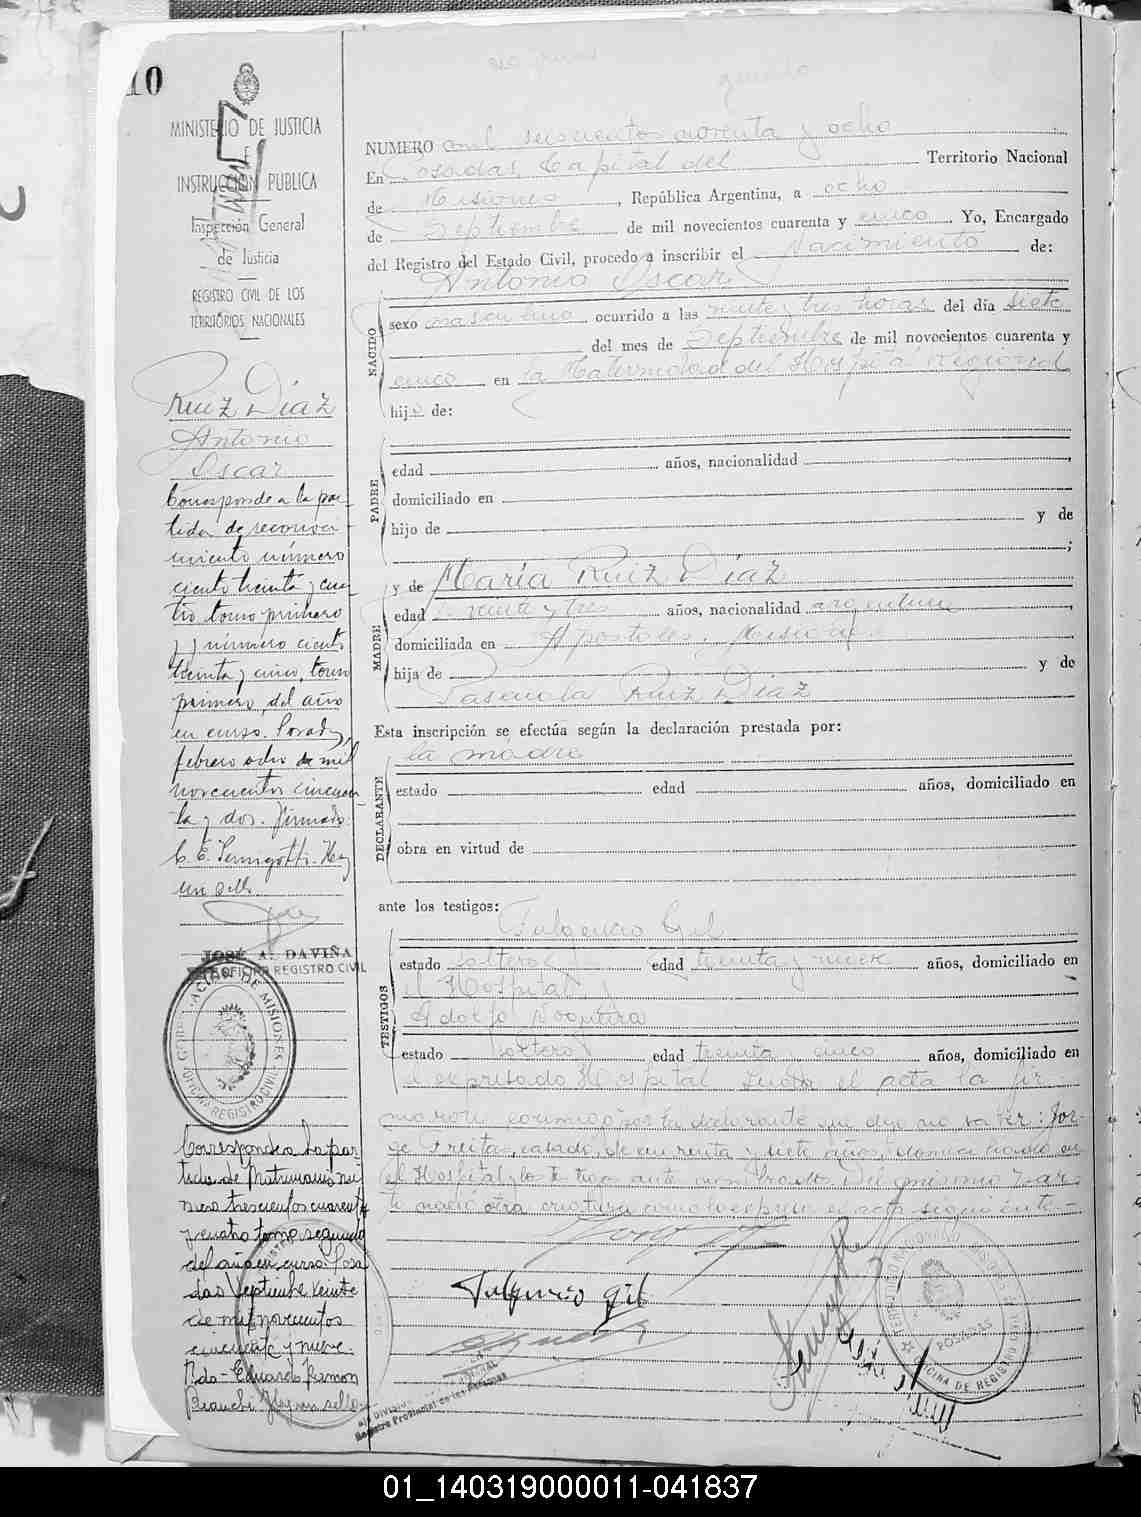 10
MINISTERIO DE JUSTICIA
INSTRUCCIÓN PUBLICA
Inspección General
de Justicia
REGISTRO CIVIL DE LOS
TERRITORIOS NACIONALES
Ruiz Díaz
Antonio
Oscar
Corresponde a la par-
tida de reconoci-
miento número
ciento treinta y cua-
tro tomo primero
y número ciento
treinta y cinco, tomo
primero, del año
en curso. Posadas,
febrero ocho de mil
novecientos cincuen-
ta y dos. Firmado:
C. E. Hay
un sello.
JOSÉ A. DAVIÑA
OFICINA REGISTRO CIVIL
GOBERNACION DE MISIONES
OFICINA REGISTRO CIVIL
Corresponde a la par-
tida de Matrimonio nú-
mero trescientos cuarenta
y cuatro tomo segundo
del año en curso. Posa-
das Septiembre veinte
de mil novecientos
cincuenta y nueve.
Fdo- Eduardo Ramon
Bianchi Hay un sello
NUMERO mil seiscientos noventa y ocho
En Posadas, Capital del Territorio Nacional
de Misiones, República Argentina, a ocho
de Septiembre de mil novecientos cuarenta y cinco. Yo, Encargado
del Registro del Estado Civil, procedo a inscribir el Nacimiento de:
Antonio Oscar
NACIDO
sexo masculino ocurrido a las veinte y tres horas del día siete
del mes de Septiembre de mil novecientos cuarenta y
cinco en la Maternidad del Hospital Regional
hijo de:
PADRE
edad años, nacionalidad
domiciliado en
hijo de y de
;
MADRE
y de María Ruiz Díaz
edad veinte y tres años, nacionalidad argentina
domiciliada en Apostoles, Misiones
hija de y de
Pascuala Ruiz Díaz
Esta inscripción se efectúa según la declaración prestada por:
la madre
DECLARANTE
estado edad años, domiciliado en
obra en virtud de
ante los testigos:
TESTIGOS
Fulgencio Gil
estado soltero edad treinta y nueve años, domiciliado en
el Hospital y
Adolfo
estado soltero edad treinta y cinco años, domiciliado en
expresado Hospital Leida el acta la fir-
maron conmigo, por la declarante que dijo no saber: Jor-
ge Freitas, casado, de cuarenta y siete años, domiciliado en
el Hospital y los testigos ante nombrados. Del mismo par-
to nació otra criatura como lo expresa el acta siguiente.-
Fulgencio Gil
POSADAS
OFICINA DE REGISTRO
Registro Provincial de las Personas
01_140319000011-041837